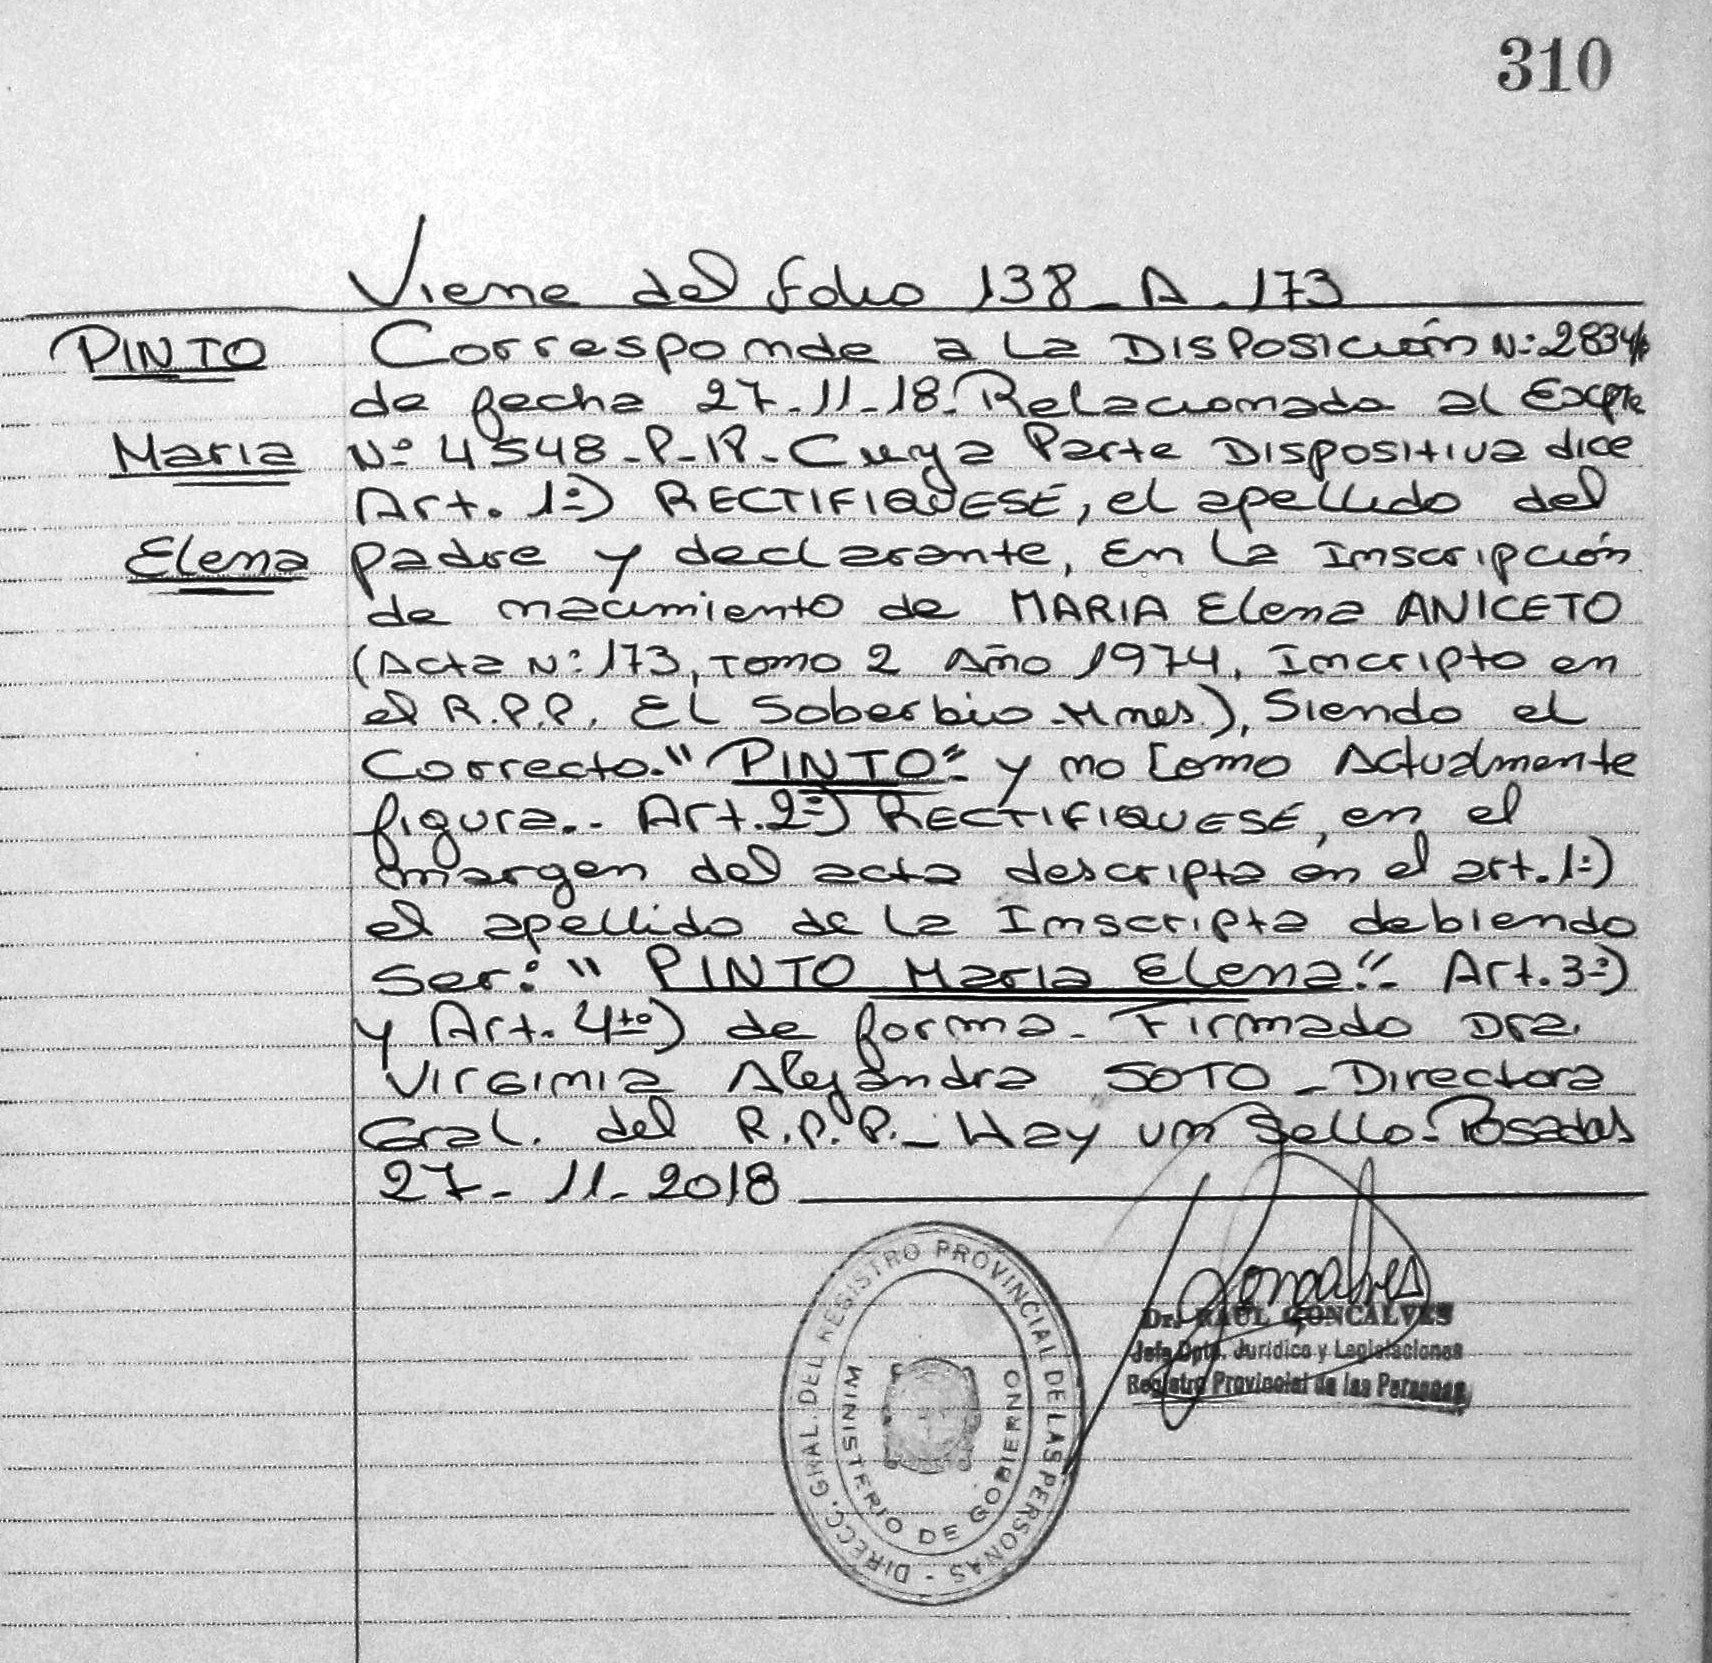 310
Viene del folio 138 - A - 173
PINTO
Maria
Elena
Corresponde a la DISPOSICIÓN N: 2834/
de fecha 27-11-18. Relacionada al Expte
Nº 4548-P-18- Cuya Parte Dispositiva dice
Art. 1º) RECTIFIQUESE, el apellido del
padre y declarante, En la Inscripción
de nacimiento de MARIA Elena ANICETO
(Acta Nº: 173, Tomo 2 Año 1974, Incripto en
el R.P.P. El Soberbio Mnes), Siendo el
Correcto "PINTO" y no Como Actualmente
figura.- Art. 2º) RECTIFIQUESE, en el
margen del acta descripta en el art. 1º)
el apellido de la Inscripta debiendo
Ser: "PINTO Maria Elena". Art. 3º)
y Art. 4to) de forma. Firmado Dra.
Virginia Alejandra SOTO - Directora
Gral. del R.P.P. - Hay un Sello. Posadas
27-11-2018
DIRECC. GRAL. DEL REGISTRO PROVINCIAL DE LAS PERSONAS -
MINISTERIO DE GOBIERNO
Goncalves
Dr. RAUL GONCALVES
Jefe Dpto. Jurídico y Legislaciones
Registro Provincial de las Personas